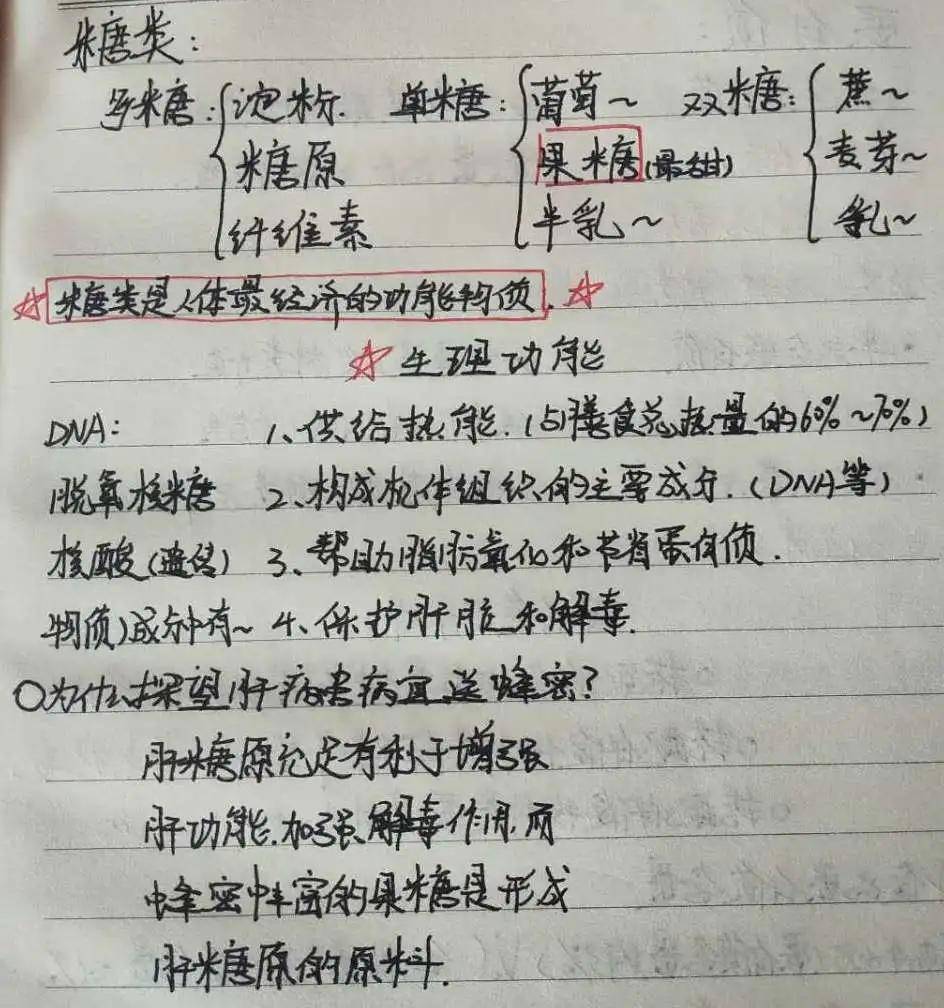 糖类:
多糖:{淀粉. 单糖:{葡萄~ 双糖:{蔗~
糖原 果糖(最甜) 麦芽~
纤维素 半乳~ 乳~
☆糖类是人体最经济的功能物质.☆
☆生理功能
DNA: 1、供给热能.(占膳食总热量的60%~70%)
脱氧核糖 2、构成机体组织的主要成分.(DNA等)
核酸(遗传) 3、帮助脂肪氧化和节省蛋白质.
物质)成分中有~ 4、保护肝脏和解毒.
○为什么探望肝病患病宜送蜂蜜?
肝糖原充足有利于增强
肝功能.加强解毒作用.而
蜂蜜中丰富的果糖是形成
肝糖原的原料.